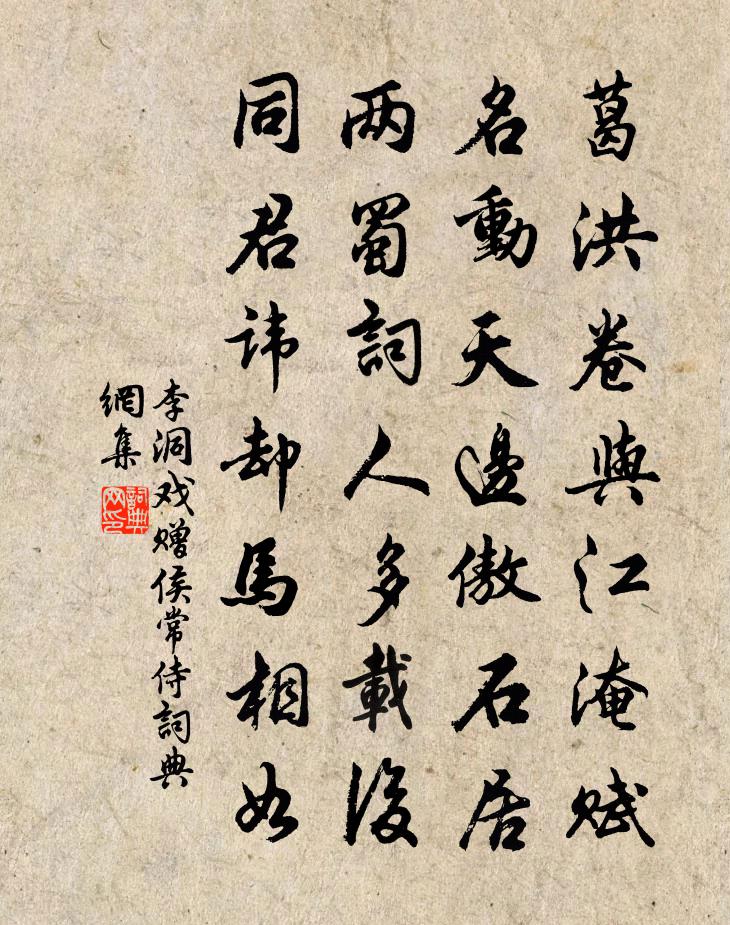 葛洪卷與江淹賦
名動天邊傲石居
两蜀詞人多載後
同君諱却馬相如
李洞戏赠侯常侍詞典
網集
詞典網印